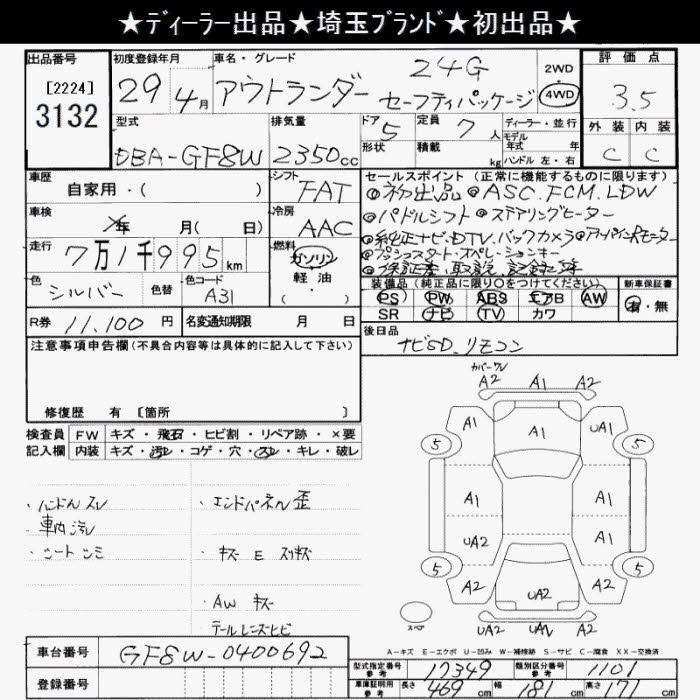 ★ディーラー出品★埼玉ブランド★初出品★
出品番号 [2224] 3132
初度登録年月 29年 4月
車名・グレード アウトランダー 24G セーフティパッケージ
2WD 4WD
評価点 3.5
外装 C 内装 C
型式 DBA-GF8W
排気量 2350cc
ドア 5 形状
定員 7人 積載 kg
ディーラー・並行
モデル年式 年式
ハンドル 左・右
車歴 自家用・( )
シフト FAT
車検 年 月( 日)
冷房 AAC
走行 7万1千995km
燃料 ガソリン 軽油 ( )
色 シルバー 色替 色コード A31
R券 11,100円 名変通知期限 月 日
セールスポイント(正常に機能するものに限ります)
◎初出品 ◎ASC.FCM.LDW
◎パドルシフト ◎ステアリングヒーター
◎純正ナビ・DTV.バックカメラ
◎プッシュスタート・スペレーションキー
◎保証書、取説、記録簿
装備品(純正品に限り○をつけてください) 新車保証書
PS PW ABS エアB AW 有・無
SR ナビ TV カワ
後日品
ナビSD.リモコン
注意事項申告欄(不具合内容等は具体的に記入して下さい)
修復歴 有 [箇所 ]
検査員 FW キズ・飛石・ヒビ割・リペア跡・×要
記入欄 内装 キズ・汚レ・コゲ・穴・スレ・キレ・破レ
・ハンドルスレ
・車内汚レ
・シートシミ
・エンドパネル歪
・キズ E スリキズ
・AW キズ
テールレンズヒビ
A2 A1 A2
A2 A1 UA1
5 5
A1 A1
UA2 A1
5 5
A2 UA2 A2
UA2 UA2 A2
スペア
A-キズ E-エクボ U-凹み W-補修跡 S-サビ C-腐食 XX-交換済
車台番号 GF8W-0400692
登録番号
型式指定番号 参考 17349 類別区分番号 参考 1101
車庫証明用 参考 長さ 469cm 幅 181cm 高さ 171cm